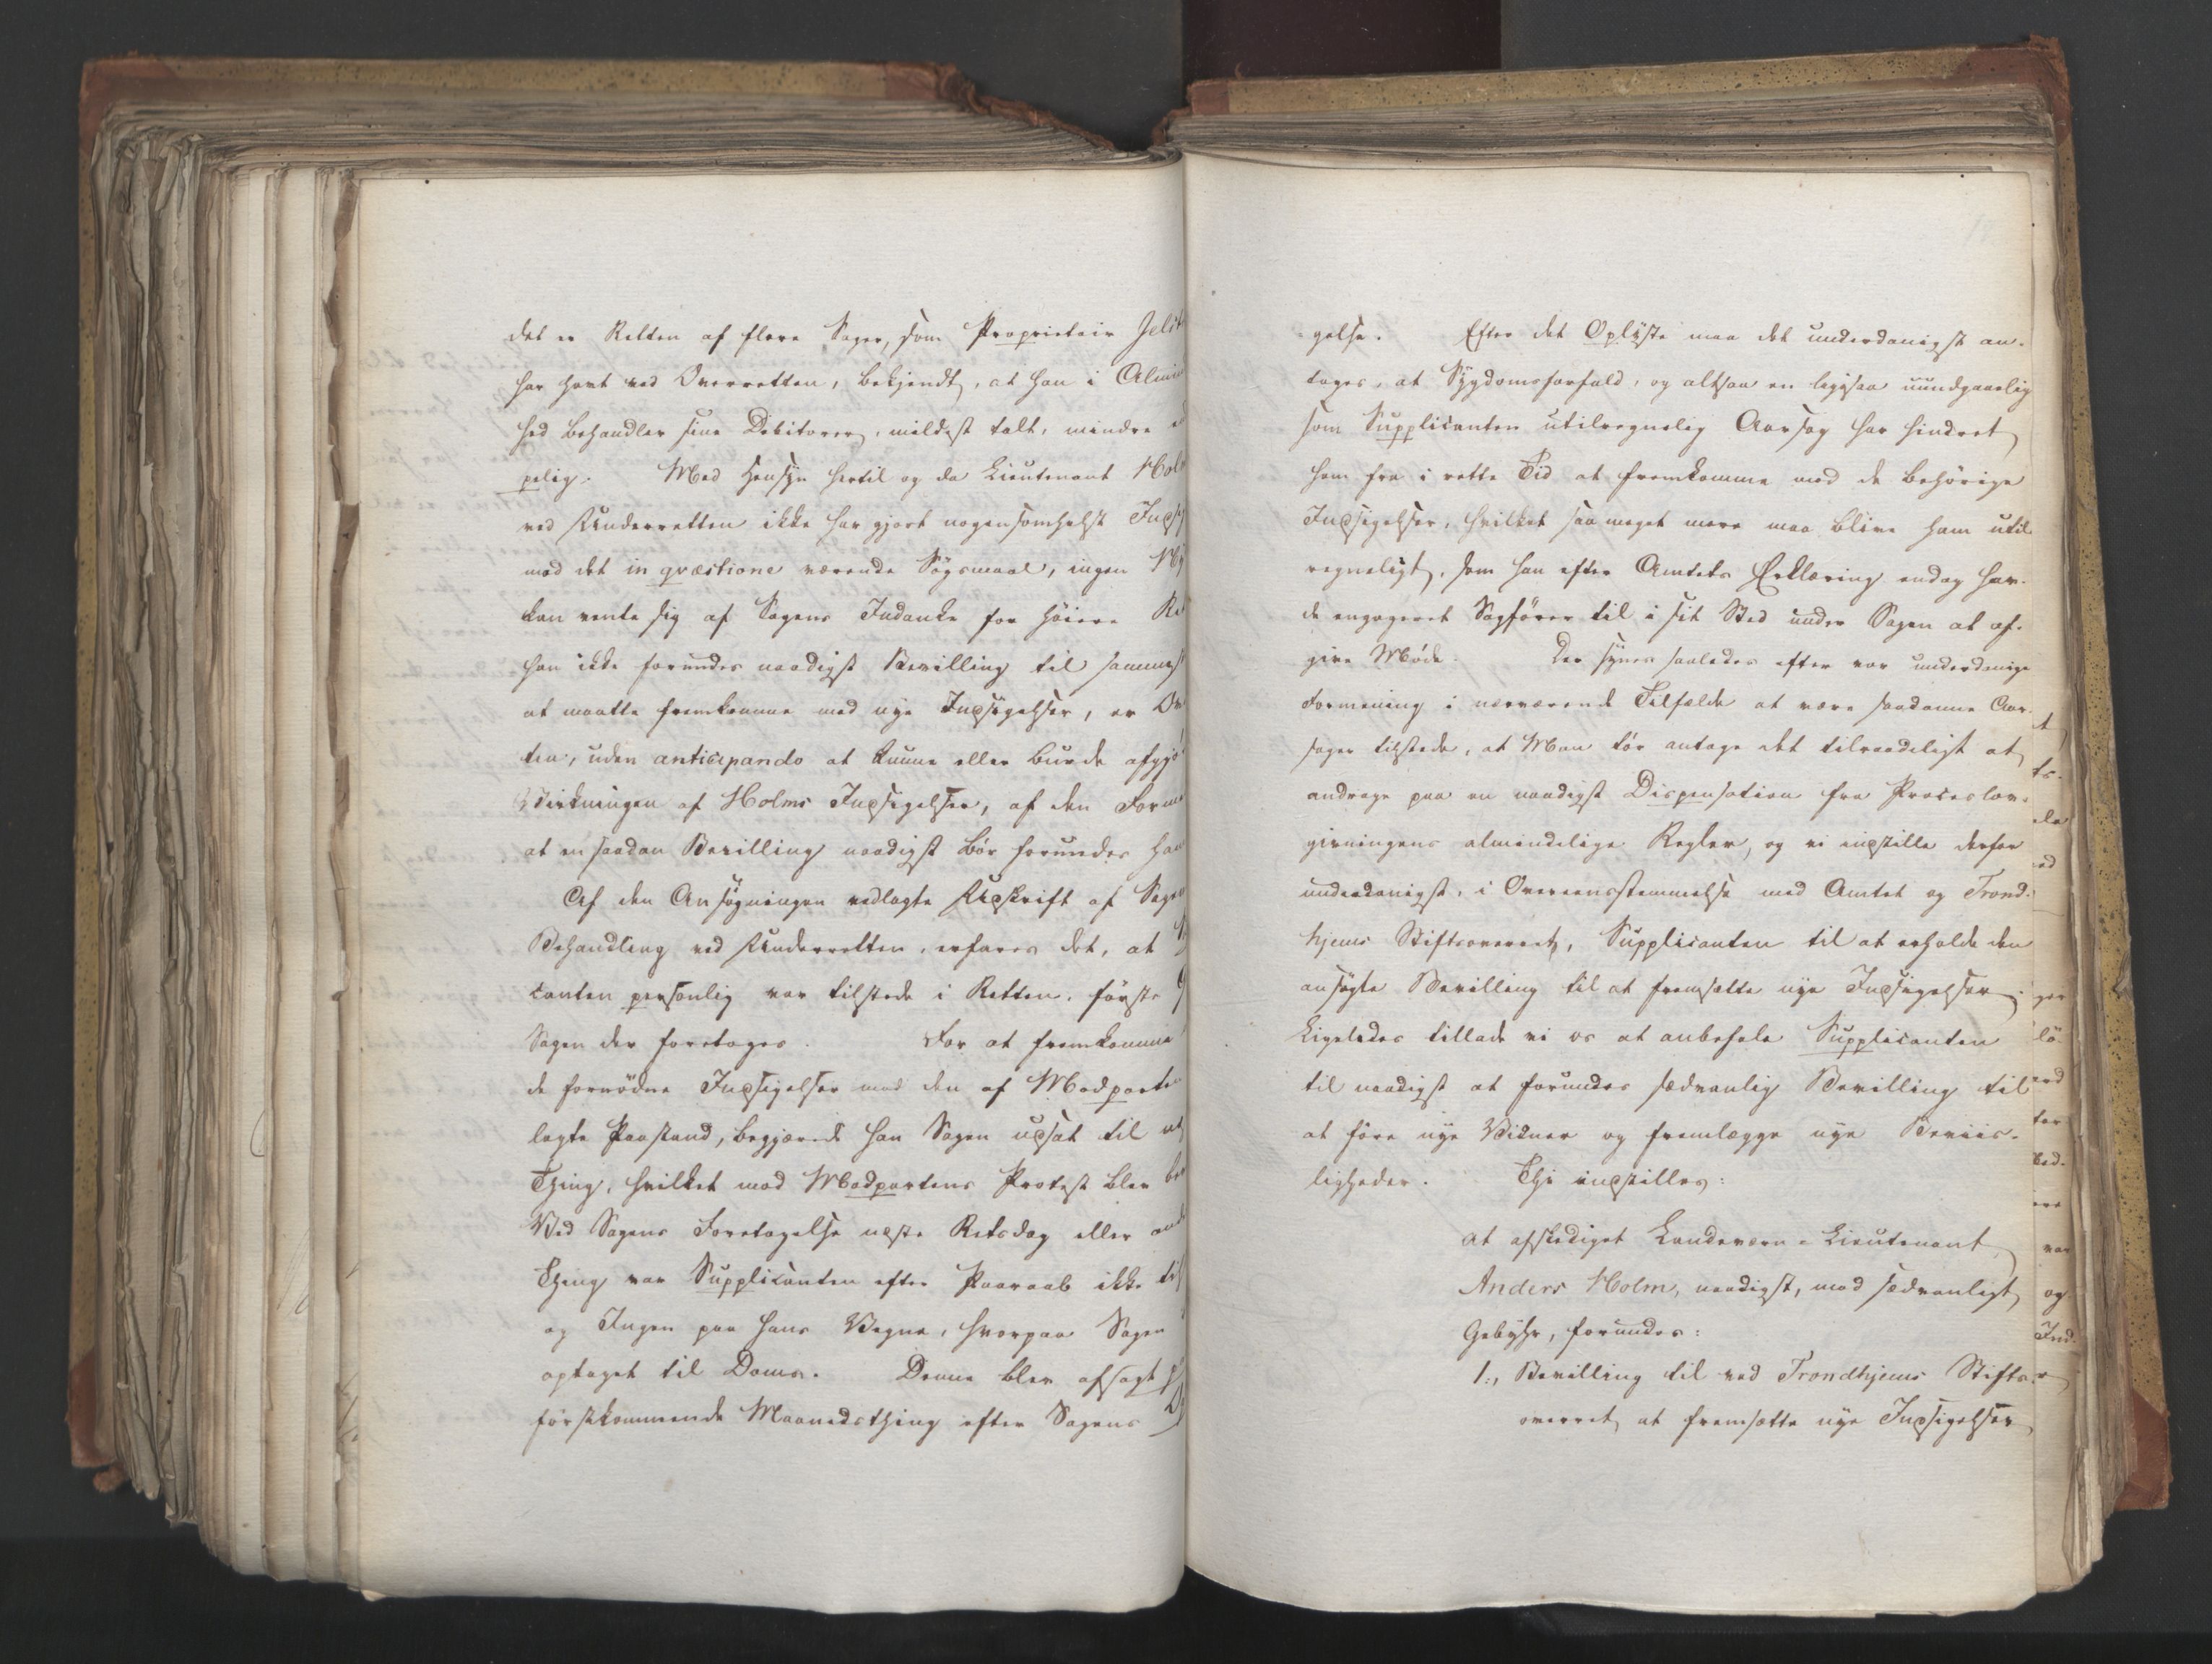 det er Retten af flere Sager, som Proprietair Jelst
har havt ved Overretten, bekjendt, at han i Almin
hed behandler sine Debitorer, mildest talt, mindre
pelig. Med Hensyn hertil og da Lieutenant Holm
ved Underretten ikke har gjort nogensomhelst Indsi
mod det in qvæstione værende Søgsmaal, ingen Ny
kan vente sig af Sagens Indanke for høiere Ret
han ikke forundes naadigst Bevilling til sammest
at maatte fremkomme med nye Indsigelser, er Ov
ten, uden anticipando at kunne eller burde afgjø
Virkningen af Holms Indsigelser, af den Forme
at en saadan Bevilling naadigst bør forundes ham
Af den Ansøgningen vedlagte Udskrift af Sagen
Behandling ved Underretten, erfares det, at
canten personlig var tilstede i Retten, første G
Sagen der foretoges. For at fremkomme
de fornødne Indsigelser mod den af Modparten
lagte Paastand, begjærede han Sagen udsat til
Thing, hvilket mod Modpartens Protest blev be
Ved Sagens Foretagelse næste Retsdag eller and
Thing var Supplicanten efter Paaraab ikke til
og Ingen paa hans Vegne, hvorpaa Sagen
optaget til Doms. Denne blev afsagt
førstkommende Maanedsthing efter Sagens
gelse. Efter det Oplyste maa det underdanigst an-
tages, at Sygdomsforfald, og altsaa en ligesaa uundgaaelig
som Supplicanten utilregnelig Aarsag har hindret
ham fra i rette Tid at fremkomme med de behørige
Indsigelser, hvilket saa meget mere maa blive ham util
regneligt, som han efter Amtets Erklæring endog hav-
de engageret Sagfører til i sit Sted under Sagen at af-
give Møde. Der synes saaledes efter vor underdanige
Formening i nærværende Tilfælde at være saadanne Aar-
sager tilstede, at Man tør antage det tilraadeligt at
andrage paa en naadigst Dispensation fra Proceslov-
givningens almindelige Regler, og vi indstille derfor
underdanigst, i Overeensstemmelse med Amtet og Trond-
hjems Stiftsoverret, Supplicanten til at erholde den
ansøgte Bevilling til at fremsætte nye Indsigelser.
Ligeledes tillade vi os at anbefale Supplicanten
til naadigst at forundes sædvanlig Bevilling til
at føre nye Vidner og fremlægge nye Beviis-
ligheder. Thi indstilles:
at afskediget Landeværn-Lieutenant
Anders Holm, naadigst, mod sædvanligt
Gebyhr, forundes:
1., Bevilling til ved Trondhjems Stifts-
overret at fremsætte nye Indsigelser